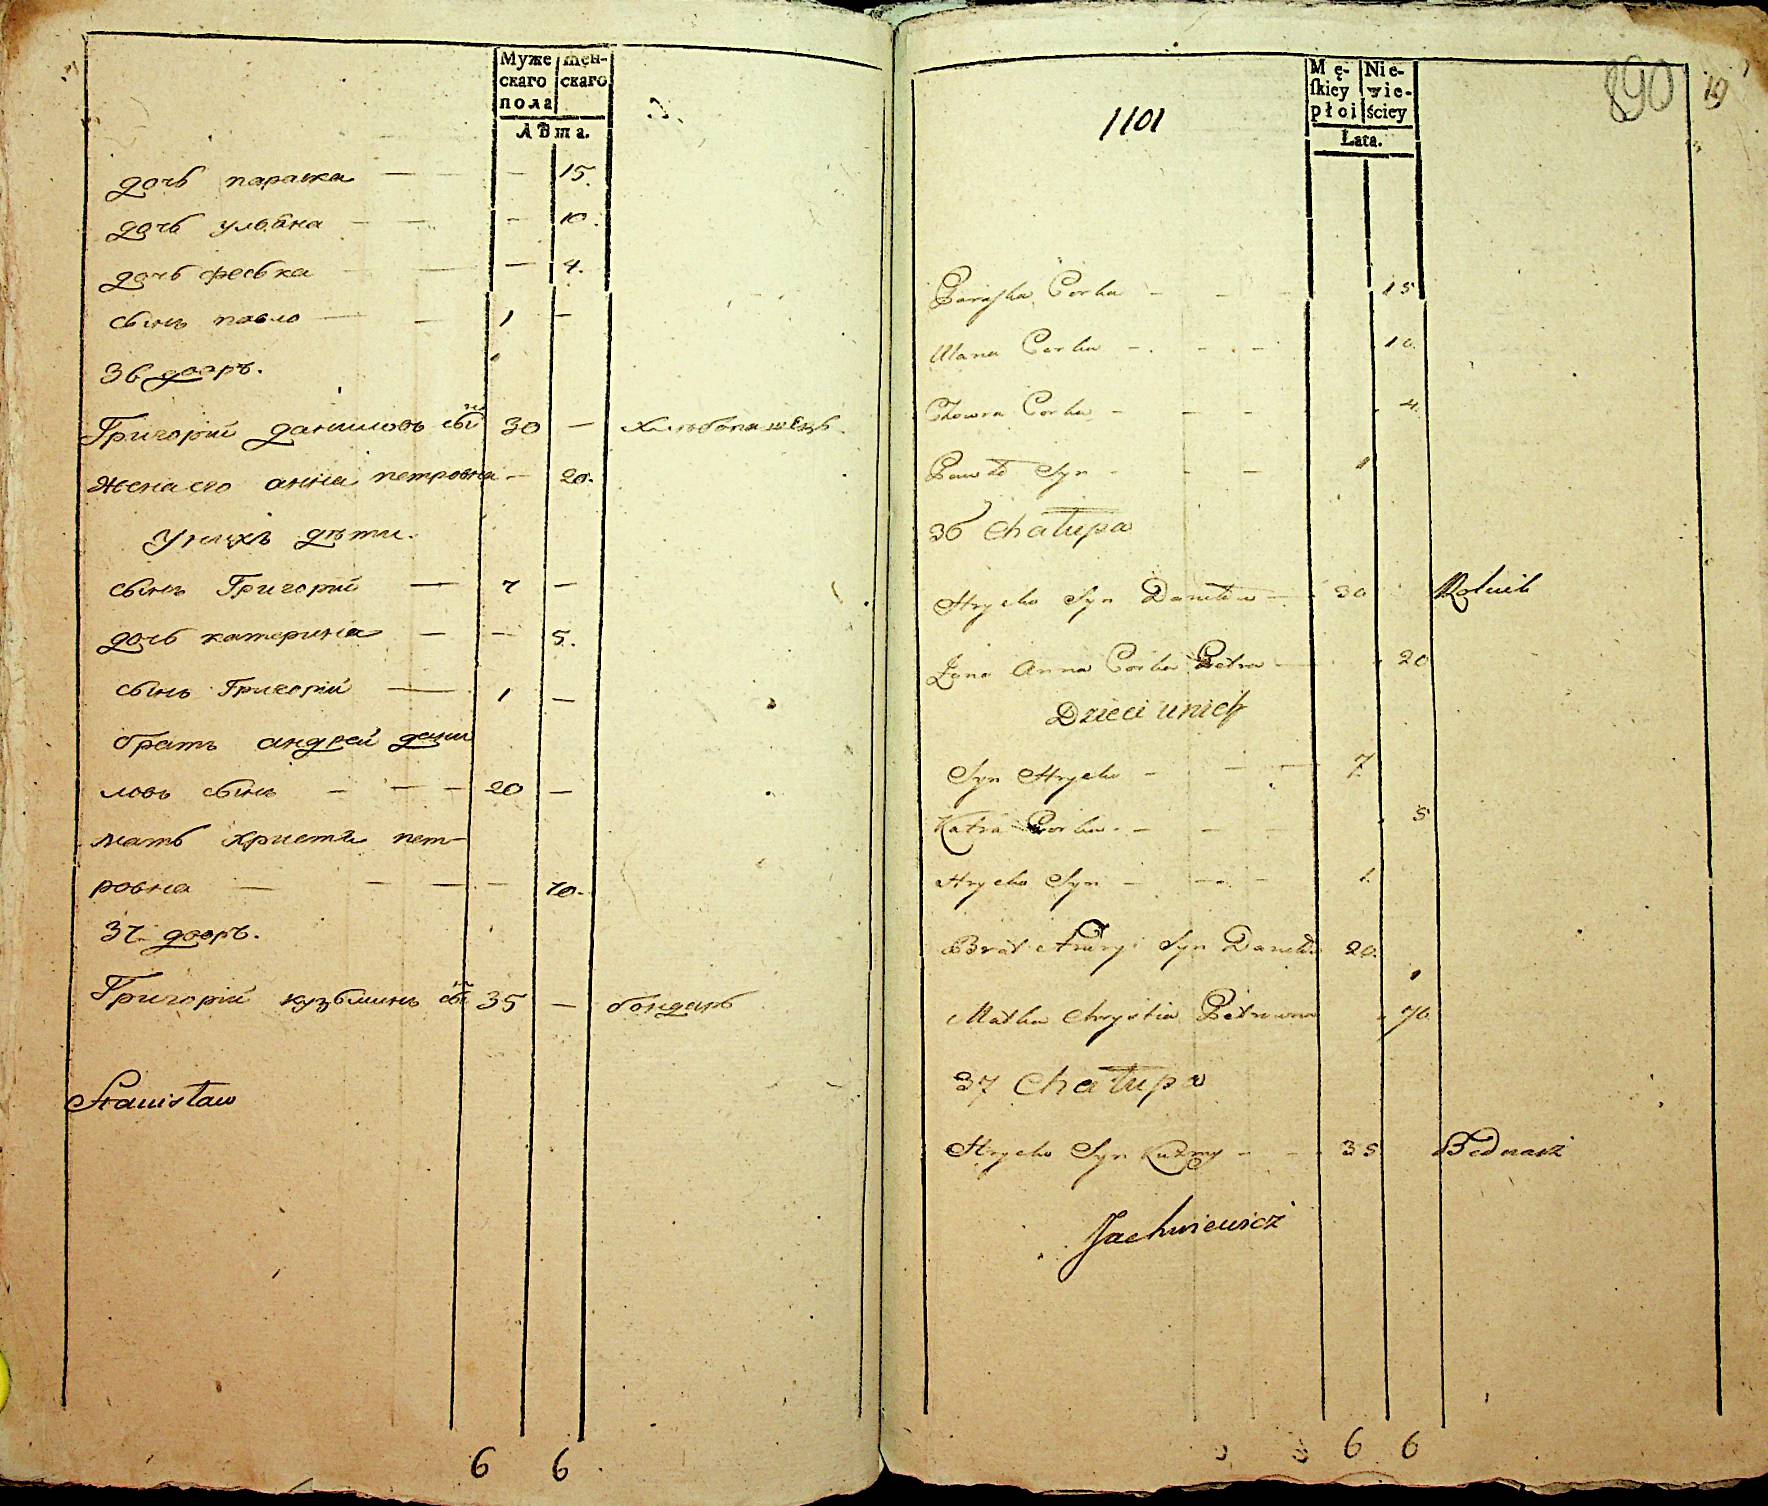 Муже Жен-
скаго скаго
пола
Лѣта.
дочь параска — — — 15.
дочь ульяна — — — 10.
дочь феська — — — 4.
сынъ павло — — 1 —
36 дворъ.
Григорий даниловъ сынъ 30 — хлѣбопашецъ.
жена его анна петровна — 20.
У нихъ дѣти.
сынъ Григорий — 7 —
дочь катерина — — 5.
сынъ Григорій — 1 —
братъ андрей дани
ловъ сынъ — — — 20 —
мать христя пет-
ровна — — — — 70.
37 дворъ.
Григорій кузьминъ сынъ 35 — бондарь
Stanisław
6 6
890 19
1101
Mę- Nie-
ſkiey wie-
płci ściey
Łata.
Paraſka Corka — — 15
Ulana Corka — . — . — 10.
Corka — — — 4.
Pawło Syn — — — 1
36 Chałupa
Hryćko Syn Daniłow — 30 Rolnik
Żona Anna Corka Piotra — 20
Dzieci unich
Syn Hryćko — — — 7.
Katra Corka. — — — 5
Hryćko Syn — — . — 1.
Brat Andryi Syn Daniłow 20.
Matka Chrystia Petrowna 70.
37 Chałupa
Hryćko Syn Kuźmy — — 35 Bednarz
Jachniewicz
6 6